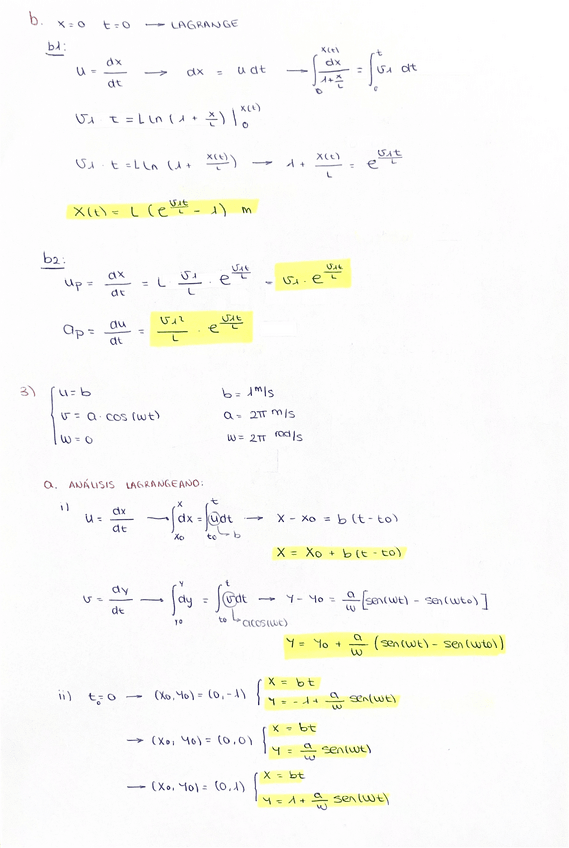 b. x=0 t=0 → LAGRANGE
b1:
u = dx/dt → dx = u dt → ∫₀^x(t) dx/(1+x/L) = ∫₀^t v1 dt
v1 · t = L ln (1 + x/L) |₀^x(t)
v1 · t = L ln (1 + x(t)/L) → 1 + x(t)/L = e^(v1t/L)
x(t) = L (e^(v1t/L) - 1) m
b2:
up = dx/dt = L · v1/L · e^(v1t/L) = v1 · e^(v1t/L)
ap = du/dt = v1²/L · e^(v1t/L)
3) { u = b b = 1 m/s
v = a · cos (wt) a = 2π m/s
w = 0 w = 2π rad/s
a. ANÁLISIS LAGRANGEANO:
i) u = dx/dt → ∫x0^x dx = ∫t0^t u dt → x - x0 = b (t - to)
b
x = x0 + b (t - to)
v = dy/dt → ∫y0^y dy = ∫t0^t v dt → y - y0 = a/w [sen(wt) - sen(wto)]
a cos(wt)
y = y0 + a/w (sen(wt) - sen(wto))
ii) to = 0 → (x0, y0) = (0, -1) { x = bt
y = -1 + a/w sen(wt)
→ (x0, y0) = (0, 0) { x = bt
y = a/w sen(wt)
→ (x0, y0) = (0, 1) { x = bt
y = 1 + a/w sen(wt)